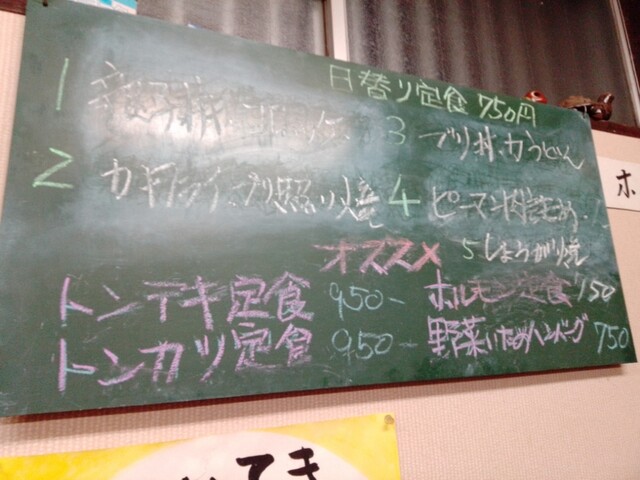 日替り定食 750円
1
3 ブリ丼、カうどん
2 カキフライ、ブリ照り焼
4 ピーマン肉詰め
オススメ
5 しょうが焼
トンテキ定食 950-
ホルモン定食
トンカツ定食 950-
野菜いためハンバーグ 750
ホ
てき